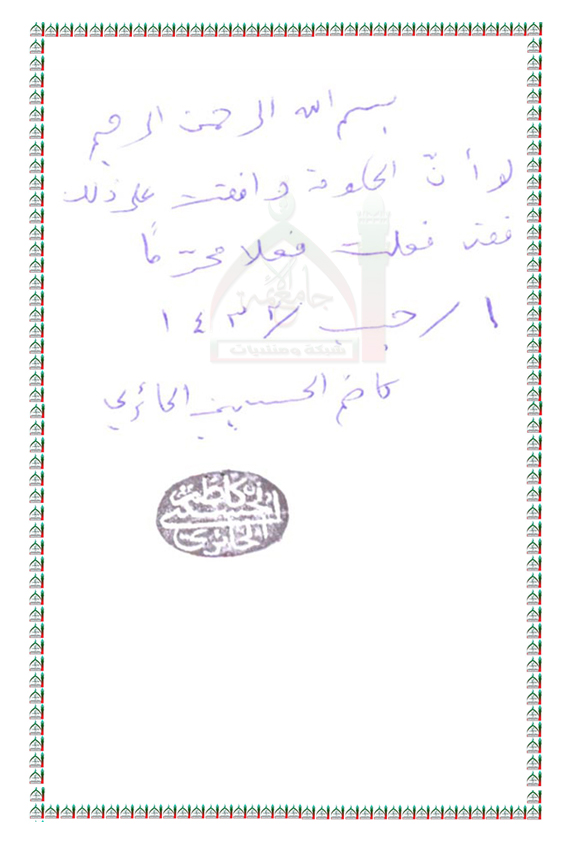 بسم الله الرحمن الرحيم
لو أنّ الحكومة وافقت على ذلك
فقد فعلت فعلا محرّمًا
١ / رجب / ١٤٣٢
كاظم الحسيني الحائري
جامعة
شبكة ومنتديات
كاظم
الحسيني
الحائري